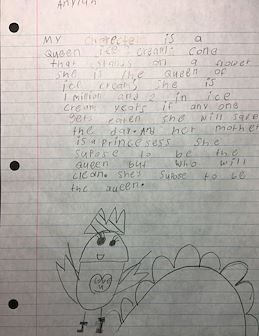 Anyiah
MY Character is a
Queen ice cream cone
that stands on a flower
she is the Queen of
ice cream. She is
1 million and 2 in ice
cream years if any one
gets eaten she will save
the day. And her mother
is a princesess she
supose to be the
queen but who will
clean. She supose to be
the queen.
Love